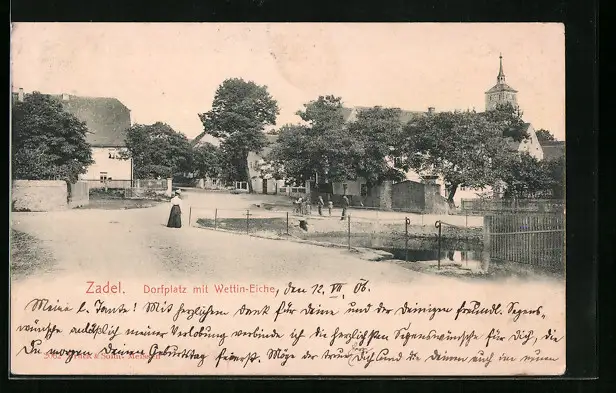 Zadel. Dorfplatz mit Wettin-Eiche, den 12. VII. 06.
Meine l. Tante! Mit herzlichem Dank für Deine und der Deinigen freundl. Segens-
wünsche anläßlich meiner Verlobung verbinde ich die herzlichsten Segenswünsche für Dich, die
Du morgen Deinen Geburtstag feierst. Möge der treue Gott Dich und die Deinen auch im neuen